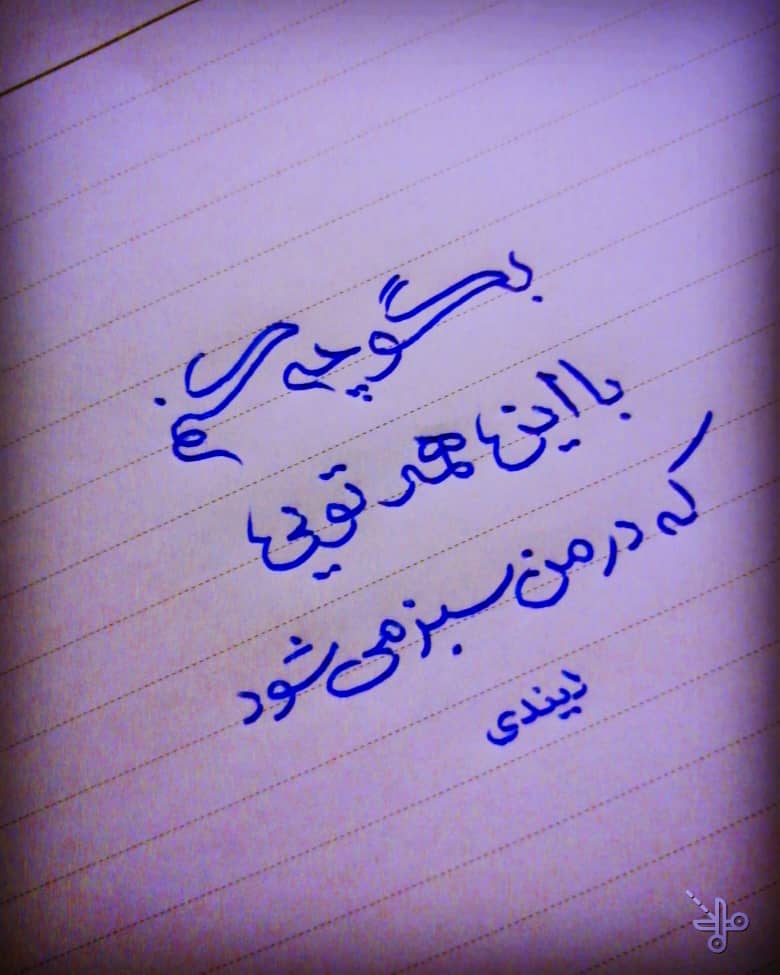 بگو چه کنم
با این همه تویی
که در من سبز می شود
دیندی